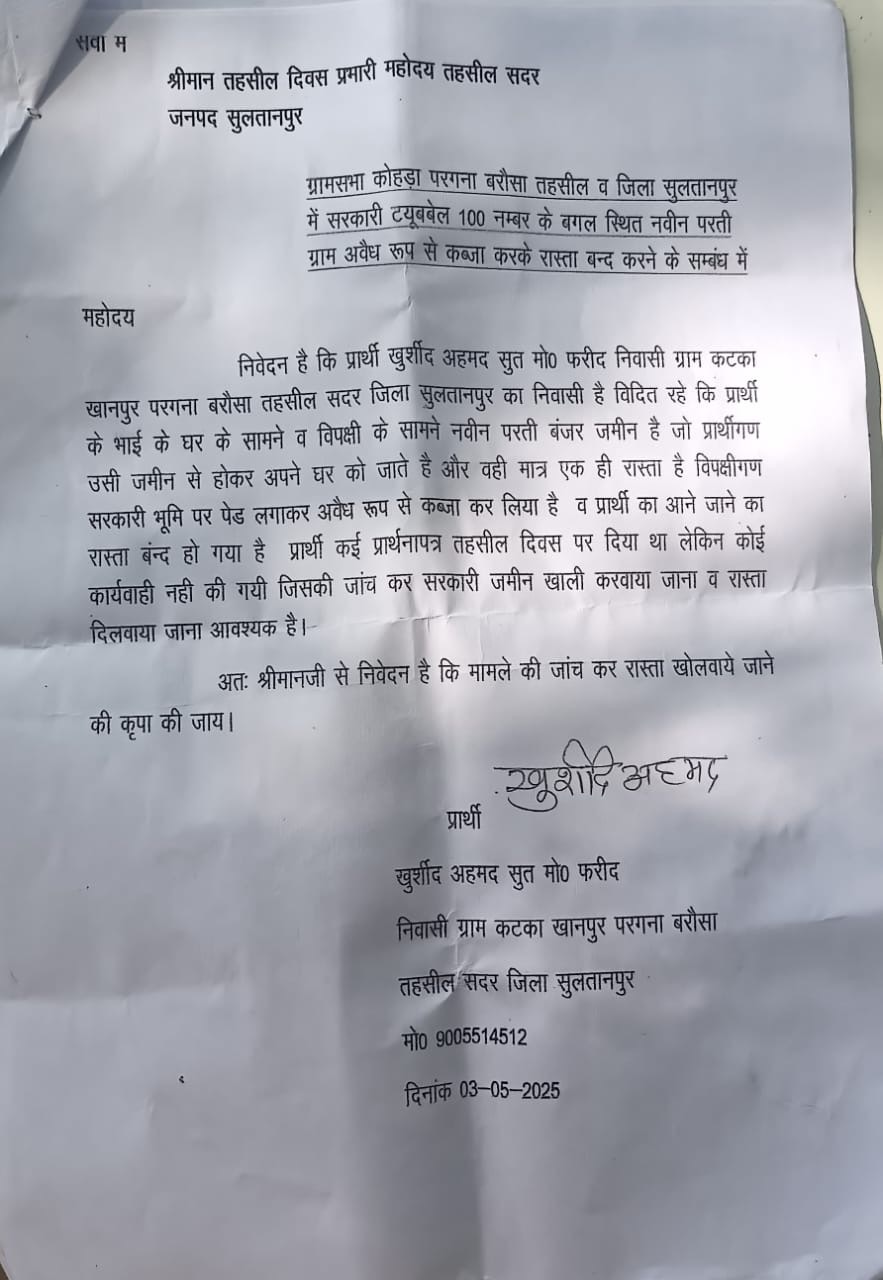 सेवा म
श्रीमान तहसील दिवस प्रभारी महोदय तहसील सदर
जनपद सुलतानपुर
ग्रामसभा कोहड़ा परगना बरौसा तहसील व जिला सुलतानपुर
में सरकारी टयूबबेल 100 नम्बर के बगल स्थित नवीन परती
ग्राम अवैध रूप से कब्जा करके रास्ता बन्द करने के सम्बंध में
महोदय
निवेदन है कि प्रार्थी खुर्शीद अहमद सुत मो0 फरीद निवासी ग्राम कटका
खानपुर परगना बरौसा तहसील सदर जिला सुलतानपुर का निवासी है विदित रहे कि प्रार्थी
के भाई के घर के सामने व विपक्षी के सामने नवीन परती बंजर जमीन है जो प्रार्थीगण
उसी जमीन से होकर अपने घर को जाते है और वही मात्र एक ही रास्ता है विपक्षीगण
सरकारी भूमि पर पेड लगाकर अवैध रूप से कब्जा कर लिया है व प्रार्थी का आने जाने का
रास्ता बंन्द हो गया है प्रार्थी कई प्रार्थनापत्र तहसील दिवस पर दिया था लेकिन कोई
कार्यवाही नही की गयी जिसकी जांच कर सरकारी जमीन खाली करवाया जाना व रास्ता
दिलवाया जाना आवश्यक है।
अतः श्रीमानजी से निवेदन है कि मामले की जांच कर रास्ता खोलवाये जाने
की कृपा की जाय।
खुर्शीद अहमद
प्रार्थी
खुर्शीद अहमद सुत मो0 फरीद
निवासी ग्राम कटका खानपुर परगना बरौसा
तहसील सदर जिला सुलतानपुर
मो0 9005514512
दिनांक 03-05-2025